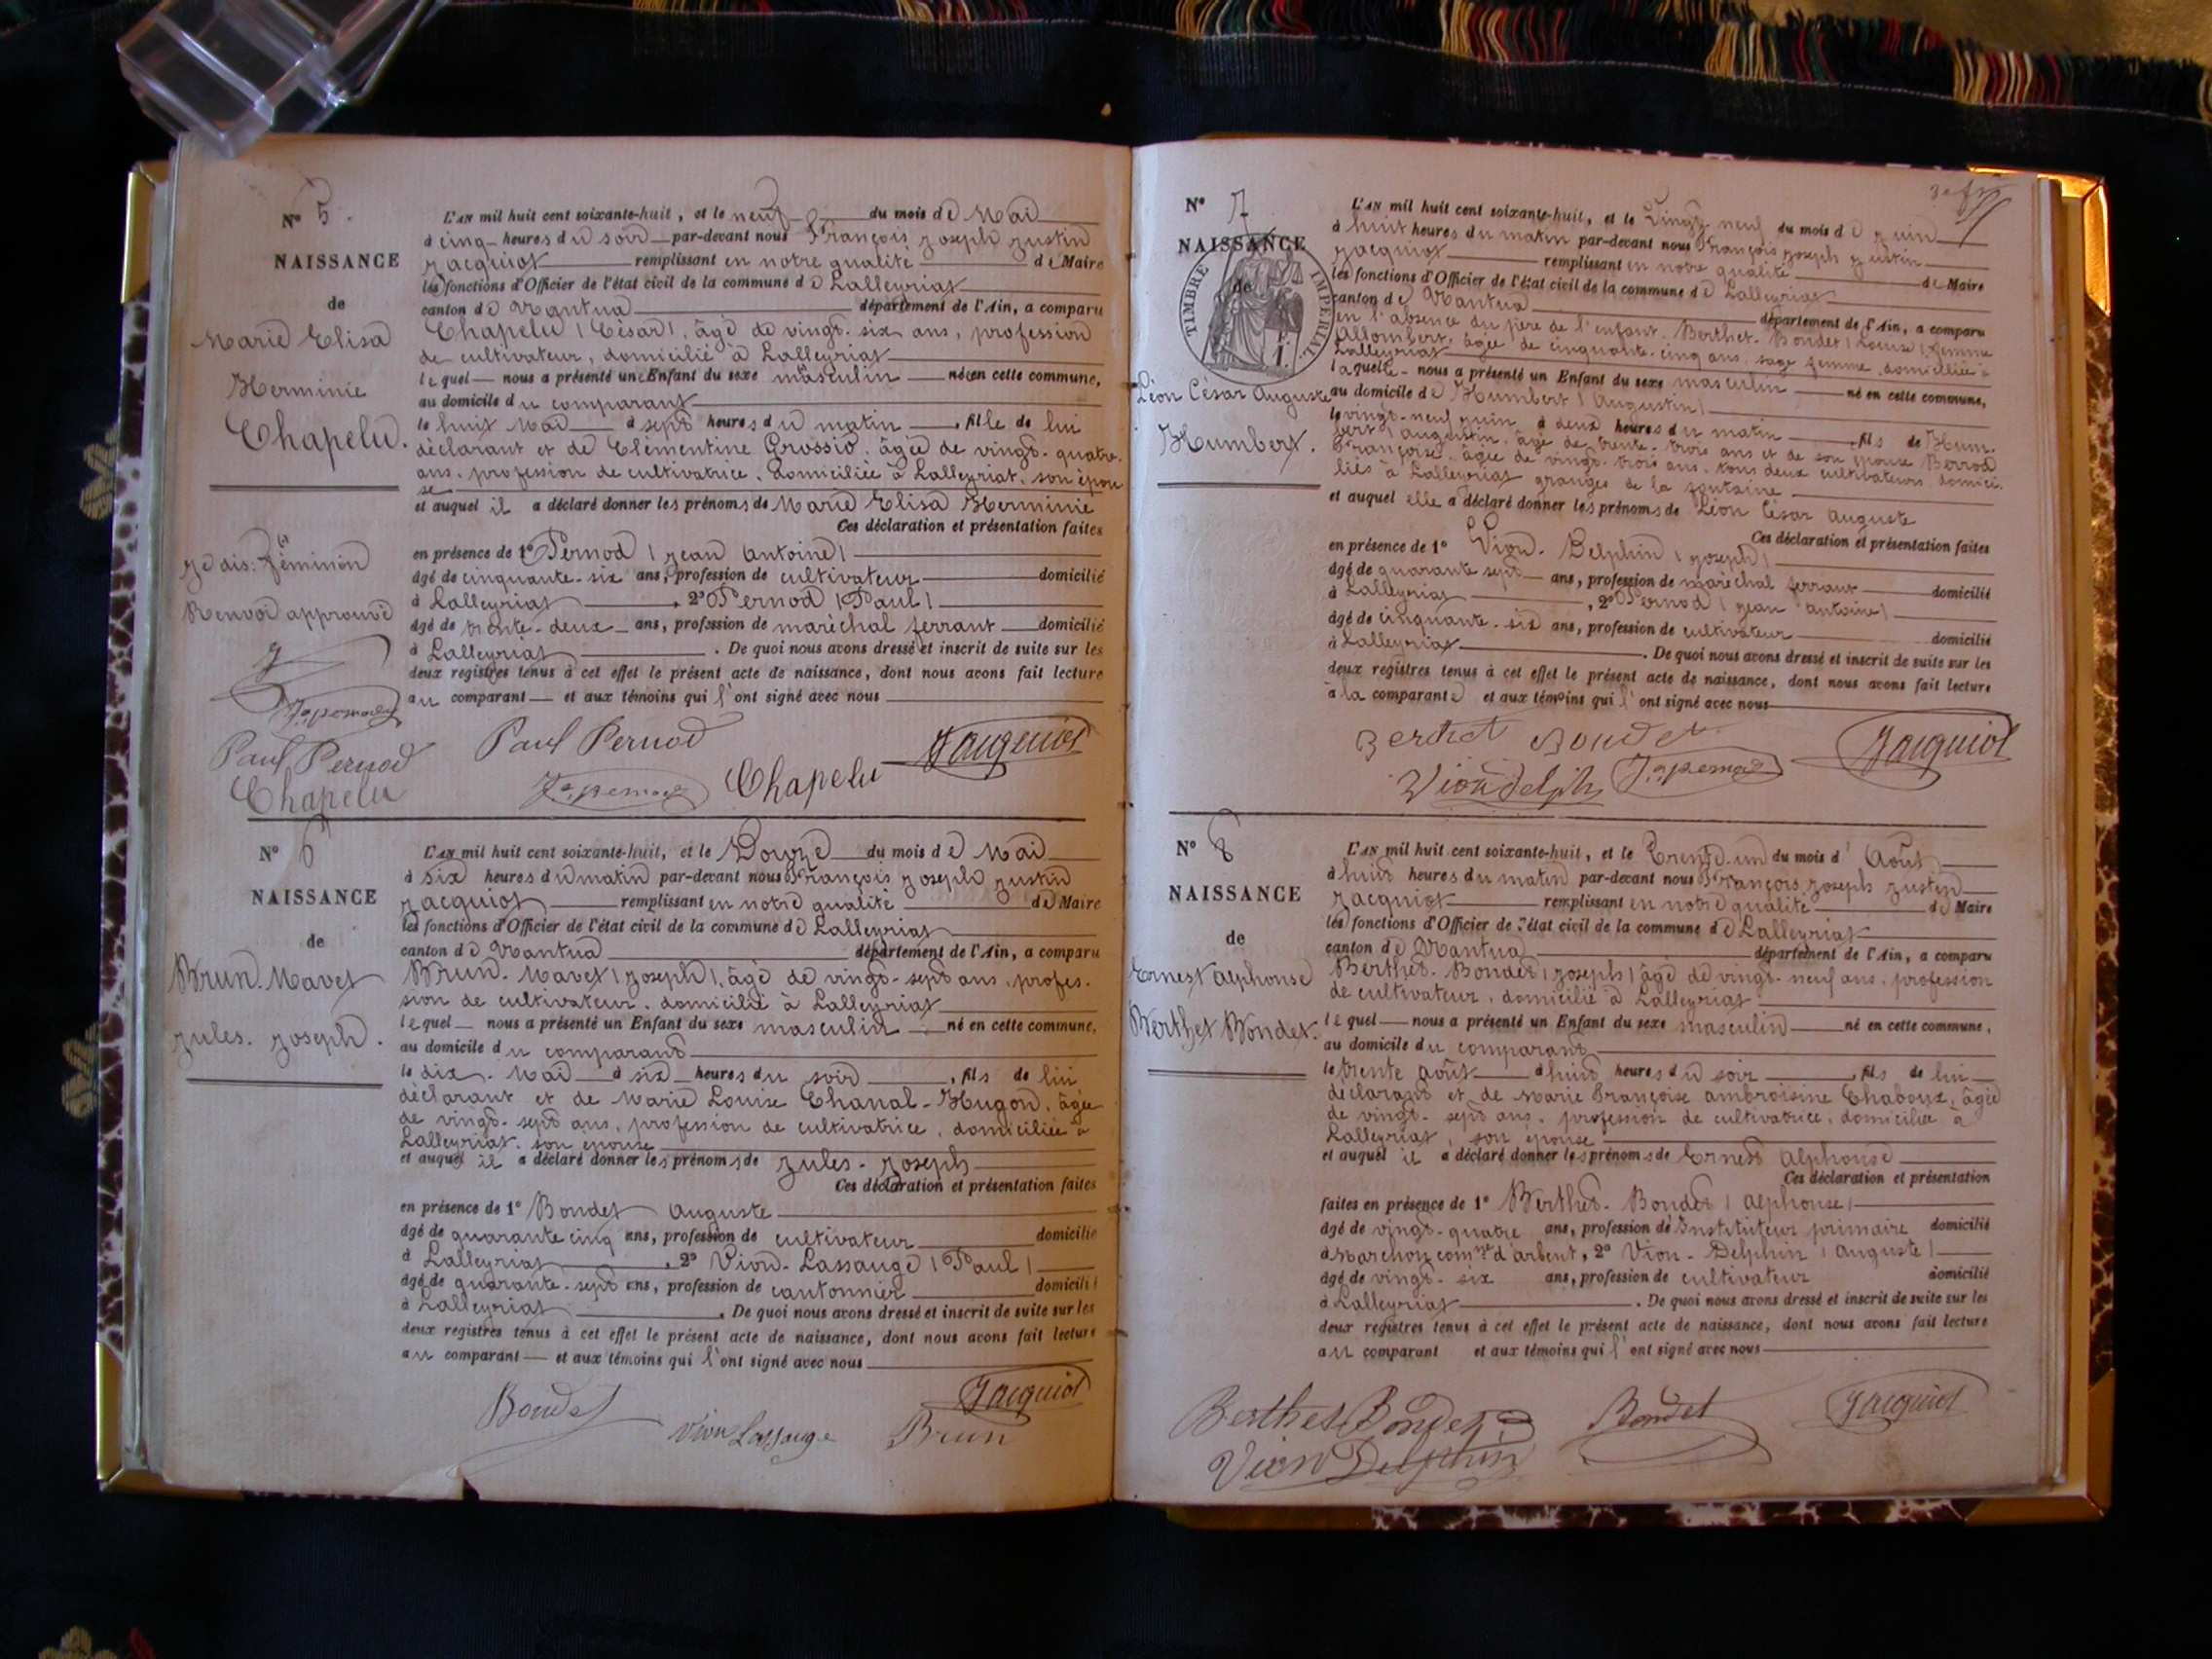 N° 5.
NAISSANCE
de
Marie Elisa
Herminie
Chapelu.
je dis: féminin
Renvoi approuvé
Paul Pernod
Chapelu
L'AN mil huit cent soixante-huit, et le neuf du mois de Mai
à cinq heures du soir par-devant nous François Joseph Justin
Jacquiot remplissant en notre qualité de Maire
les fonctions d'Officier de l'état civil de la commune de Lalleyriat
canton de Nantua département de l'Ain, a comparu
Chapelu (César), âgé de vingt-six ans, profession
de cultivateur, domicilié à Lalleyriat
lequel nous a présenté une Enfant du sexe masculin née en cette commune,
au domicile du comparant
le huit Mai à sept heures du matin, fille de lui
déclarant et de Clémentine Grossio, âgée de vingt-quatre
ans, profession de cultivatrice, domiciliée à Lalleyriat, son épou
se
et auquel il a déclaré donner les prénoms de Marie Elisa Herminie
Ces déclaration et présentation faites
en présence de 1° Pernod (Jean Antoine)
âgé de cinquante-six ans, profession de cultivateur domicilié
à Lalleyriat, 2° Pernod (Paul)
âgé de trente-deux ans, profession de maréchal ferrant domicilié
à Lalleyriat. De quoi nous avons dressé et inscrit de suite sur les
deux registres tenus à cet effet le présent acte de naissance, dont nous avons fait lecture
au comparant et aux témoins qui l'ont signé avec nous
Paul Pernod Jacquiot
Chapelu
N° 6
NAISSANCE
de
Brun-Mavet
Jules-Joseph.
L'AN mil huit cent soixante-huit, et le Douze du mois de Mai
à six heures du matin par-devant nous François Joseph Justin
Jacquiot remplissant en notre qualité de Maire
les fonctions d'Officier de l'état civil de la commune de Lalleyriat
canton de Nantua département de l'Ain, a comparu
Brun-Mavet (Joseph), âgé de vingt-sept ans, profes-
sion de cultivateur, domicilié à Lalleyriat
lequel nous a présenté un Enfant du sexe masculin né en cette commune,
au domicile du comparant
le dix Mai à six heures du soir, fils de lui
déclarant et de Marie Louise Chanal-Hugon, âgée
de vingt-sept ans, profession de cultivatrice, domiciliée à
Lalleyriat, son épouse
et auquel il a déclaré donner les prénoms de Jules-Joseph
Ces déclaration et présentation faites
en présence de 1° Bondet Auguste
âgé de quarante cinq ans, profession de cultivateur domicilié
à Lalleyriat, 2° Vion-Lassauge (Paul)
âgé de quarante-sept ans, profession de cantonnier domicilié
à Lalleyriat. De quoi nous avons dressé et inscrit de suite sur les
deux registres tenus à cet effet le présent acte de naissance, dont nous avons fait lecture
au comparant et aux témoins qui l'ont signé avec nous
Bondet Jacquiot
Vion Lassauge Brun
N° 7
NAISSANCE
de
TIMBRE IMPERIAL
Léon César Auguste
Humbert.
L'AN mil huit cent soixante-huit, et le Vingt-neuf du mois de Juin
à huit heures du matin par-devant nous François Joseph Justin
Jacquiot remplissant en notre qualité de Maire
les fonctions d'Officier de l'état civil de la commune de Lalleyriat
canton de Nantua département de l'Ain, a comparu
en l'absence du père de l'enfant, Berthet-Bondet (Louise) femme
Allombert, âgée de cinquante-cinq ans, sage femme, domiciliée à
Lalleyriat
laquelle nous a présenté un Enfant du sexe masculin né en cette commune,
au domicile de Humbert (Augustin)
le vingt-neuf juin à deux heures du matin, fils de Hum-
bert (Augustin, âgé de trente-trois ans et de son épouse Berrod
Françoise, âgée de vingt-trois ans, tous deux cultivateurs domici-
liés à Lalleyriat granges de la fontaine
et auquel elle a déclaré donner les prénoms de Léon César Auguste
Ces déclaration et présentation faites
en présence de 1° Vion-Delphin (Joseph)
âgé de quarante sept ans, profession de maréchal ferrant domicilié
à Lalleyriat, 2° Pernod (Jean Antoine)
âgé de cinquante-six ans, profession de cultivateur domicilié
à Lalleyriat. De quoi nous avons dressé et inscrit de suite sur les
deux registres tenus à cet effet le présent acte de naissance, dont nous avons fait lecture
à la comparante et aux témoins qui l'ont signé avec nous
Berthet Bondet Jacquiot
Vion Delphin
N° 8
NAISSANCE
de
Ernest Alphonse
Berthet Bondet.
L'AN mil huit cent soixante-huit, et le Trente-un du mois d'Août
à huit heures du matin par-devant nous François Joseph Justin
Jacquiot remplissant en notre qualité de Maire
les fonctions d'Officier de l'état civil de la commune de Lalleyriat
canton de Nantua département de l'Ain, a comparu
Berthet-Bondet (Joseph) âgé de vingt-neuf ans, profession
de cultivateur, domicilié à Lalleyriat
lequel nous a présenté un Enfant du sexe masculin né en cette commune,
au domicile du comparant
le trente Août à huit heures du soir, fils de lui
déclarant et de Marie Françoise Ambroisine Chaboux, âgée
de vingt-sept ans, profession de cultivatrice, domiciliée à
Lalleyriat, son épouse
et auquel il a déclaré donner les prénoms de Ernest Alphonse
Ces déclaration et présentation
faites en présence de 1° Berthet-Bondet (Alphonse)
âgé de vingt-quatre ans, profession de Instituteur primaire domicilié
à Marchon comne d'arbent, 2° Vion-Delphin (Auguste)
âgé de vingt-six ans, profession de cultivateur domicilié
à Lalleyriat. De quoi nous avons dressé et inscrit de suite sur les
deux registres tenus à cet effet le présent acte de naissance, dont nous avons fait lecture
au comparant et aux témoins qui l'ont signé avec nous
Berthet Bondet Bondet Jacquiot
Vion Delphin